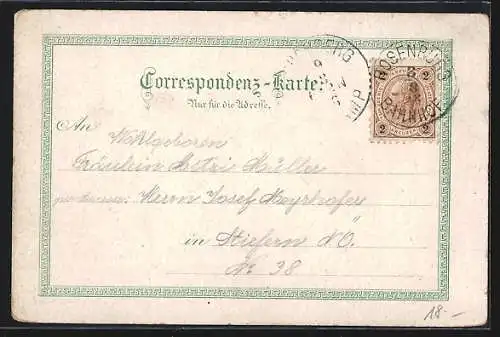 Correspondenz-Karte.
Nur für die Adresse.
An
Wohlgeboren
Fräulein Mitzi Müller
Herrn Josef Mayrhofer
in Stiefern N.Ö.
No. 38
ROSENBURG
BAHNHOF
2 2
2 2
18.-